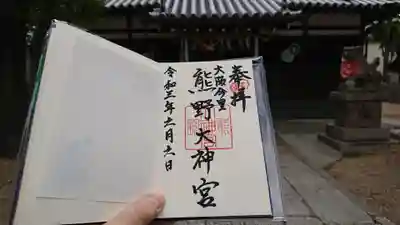 奉拝
大阪今里
熊野大神宮
令和三年六月六日